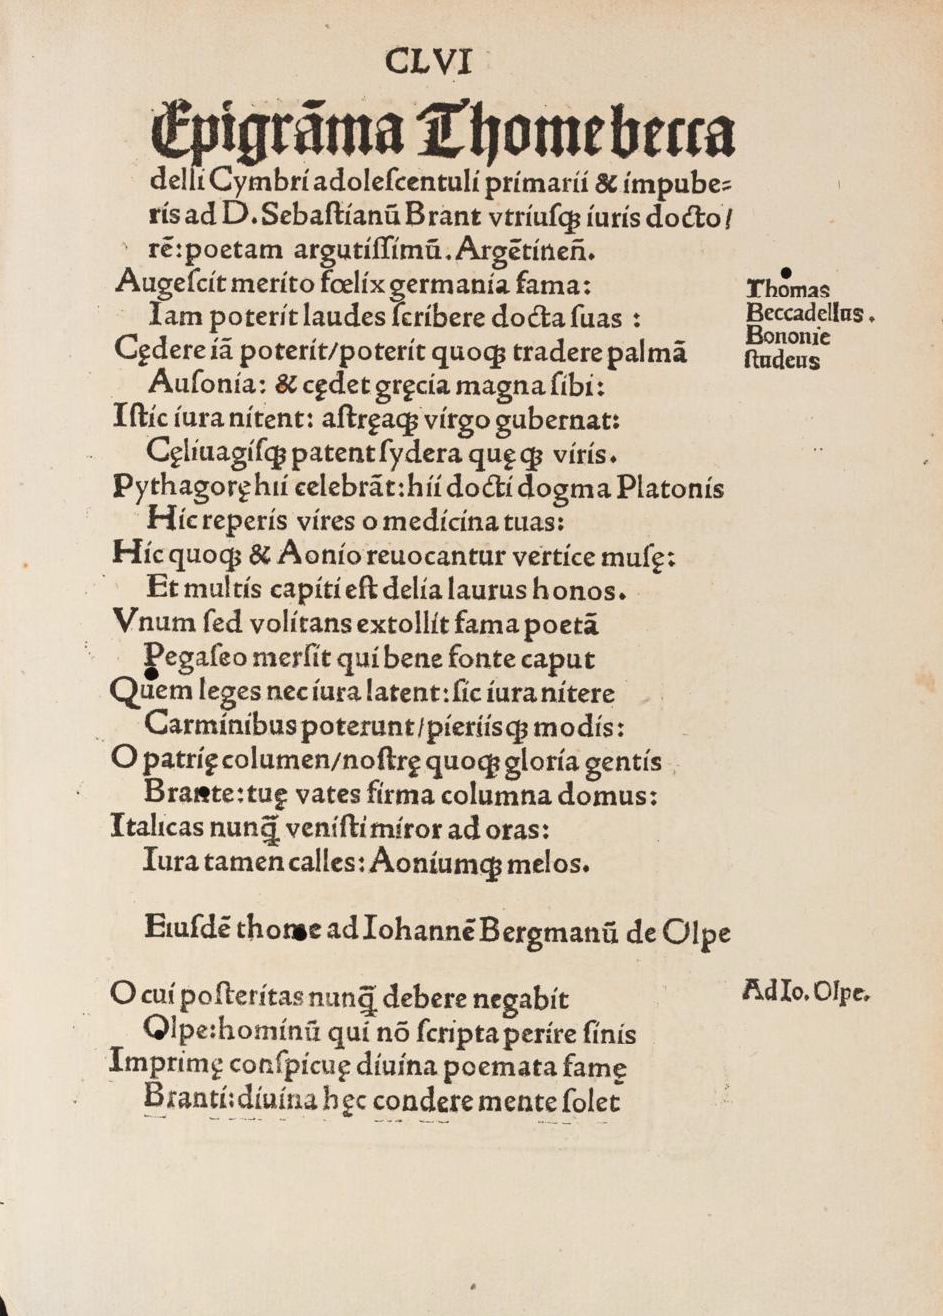 CLVI
Epigrãma Thome becca
delli Cymbri adoleſcentuli primarii & impube⸗
ris ad D. Sebaſtianũ Brant vtriuſqꝫ iuris docto/
rẽ: poetam argutiſſimũ. Argẽtineñ.
Augeſcit merito fœlix germania fama:
Thomas
Iam poterit laudes ſcribere docta ſuas :
Beccadellus.
Cędere iã poterit/poterit quoqꝫ tradere palmã
Bononie
Auſonia: & cędet gręcia magna ſibi:
ſtudeus
Iſtic iura nitent: aſtręaqꝫ virgo gubernat:
Cęliuagiſqꝫ patent ſydera quęqꝫ viris.
Pythagorę hii celebrãt: hii docti dogma Platonis
Hic reperis vires o medicina tuas:
Hic quoqꝫ & Aonio reuocantur vertice muſę:
Et multis capiti eſt delia laurus honos.
Vnum ſed volitans extollit fama poetã
Pegaſeo merſit qui bene fonte caput
Quem leges nec iura latent: ſic iura nitere
Carminibus poterunt/pieriisqꝫ modis:
O patrię columen/noſtrę quoqꝫ gloria gentis
Brante: tuę vates firma columna domus:
Italicas nunq̃ veniſti miror ad oras:
Iura tamen calles: Aoniumqꝫ melos.
Eiuſdẽ thome ad Iohannẽ Bergmanũ de Olpe
O cui poſteritas nunq̃ debere negabit
Ad Io. Olpe.
Olpe: hominũ qui nõ ſcripta perire ſinis
Imprimę conſpicuę diuina poemata famę
Branti: diuina hęc condere mente ſolet